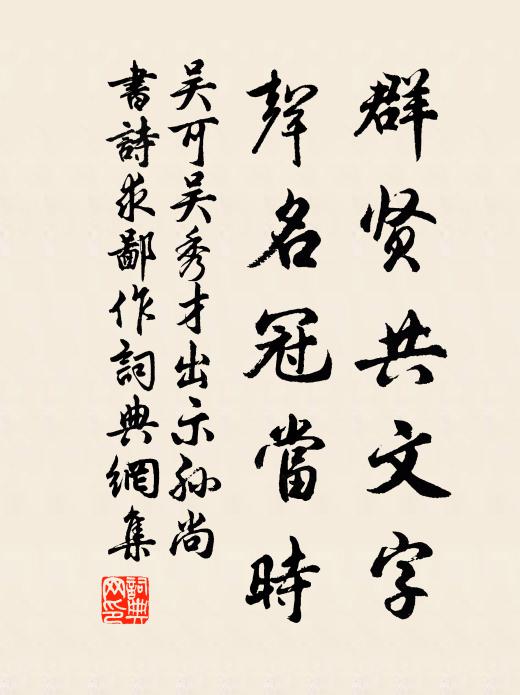 群贤共文字
聲名冠當時
吴可吴秀才出示孙尚
書詩求鄙作詞典網集
詞典網印